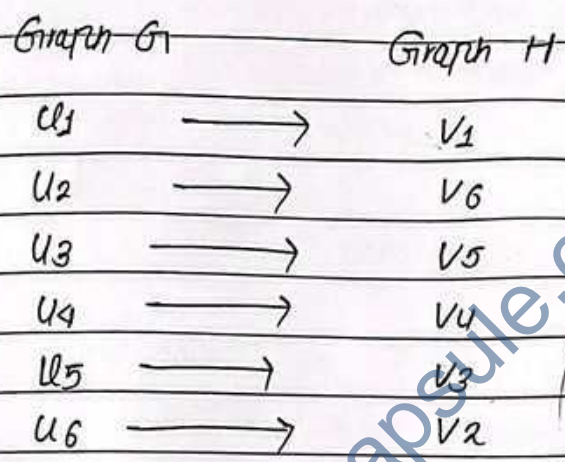 Graph G Graph H
u1 → v1
u2 → v6
u3 → v5
u4 → v4
u5 → v3
u6 → v2